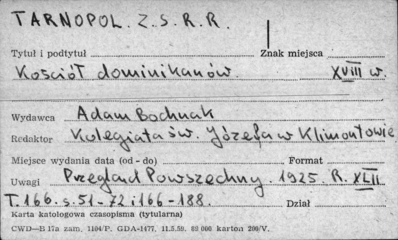 TARNOPOL. Z.S.R.R.
Tytuł i podtytuł Znak miejsca
Kościół dominikanów. XVIII w.
Wydawca Adam Bochnak
Redaktor Kolegiata św. Józefa w Klimontowie
Miejsce wydania data (od - do) Format
Uwagi Przegląd Powszechny. 1925. R. XLII
T. 166. s. 51-72 i 166-188. Dział
Karta katologowa czasopisma (tytularna)
CWD—B 17a zam. 1104/P. GDA-1477. 11.5.59. 82 000 karton 200/V.